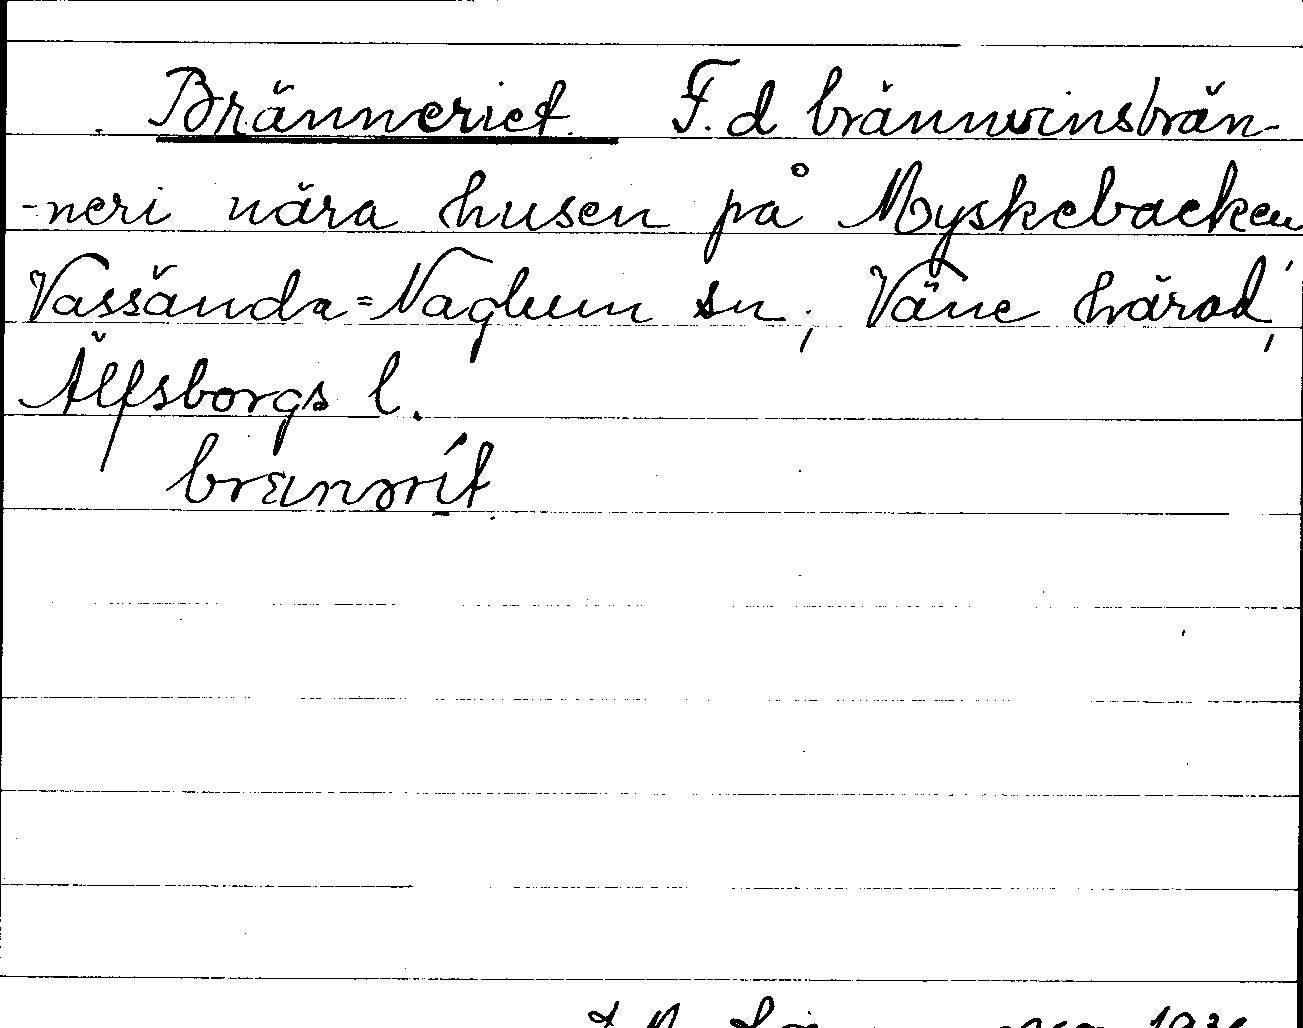 Bränneriet. F.d brännvinsbrän-
-neri nära husen på Myskebacken,
Vassända=Naglum sn, Väne härad,
Älfsborgs l.